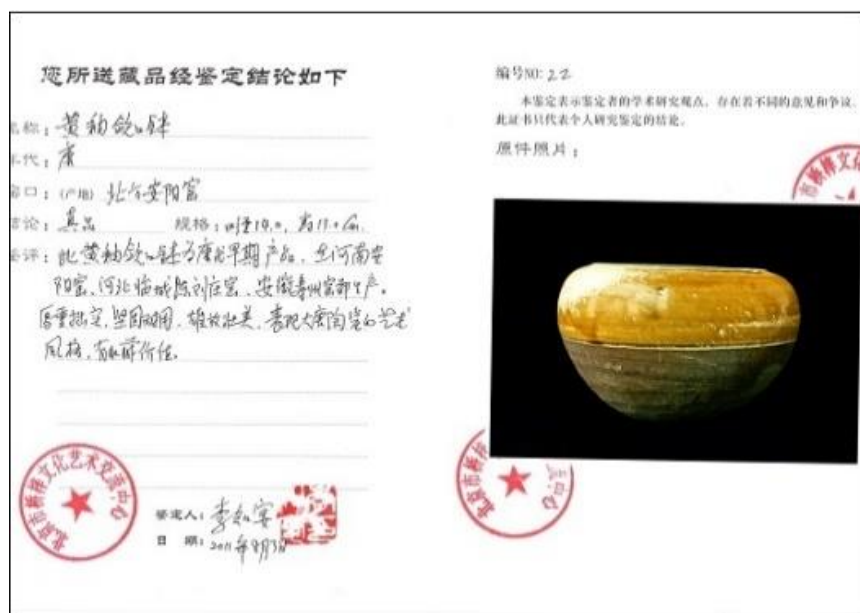 您所送藏品经鉴定结论如下
名称：黄釉敛口钵
年代：唐
窑口：(产地) 北方安阳窑
结论：真品 规格：口径19.0，高13.0cm.
鉴评：此黄釉敛口钵为唐代早期产品，在河南安
阳窑、河北临城陈刘庄窑、安徽寿州窑都生产。
厚重拙实，坚固耐用，雄放壮美，表现大唐陶瓷的艺术
风格，有收藏价值。
北京市桥梓文化艺术交流中心
鉴定人：李知宴
日 期：2011年8月3日
编号NO: 22
本鉴定表示鉴定者的学术研究观点，存在着不同的意见和争议，
此证书只代表个人研究鉴定的结论。
原件照片：
市桥梓文化
北京市桥
流中心